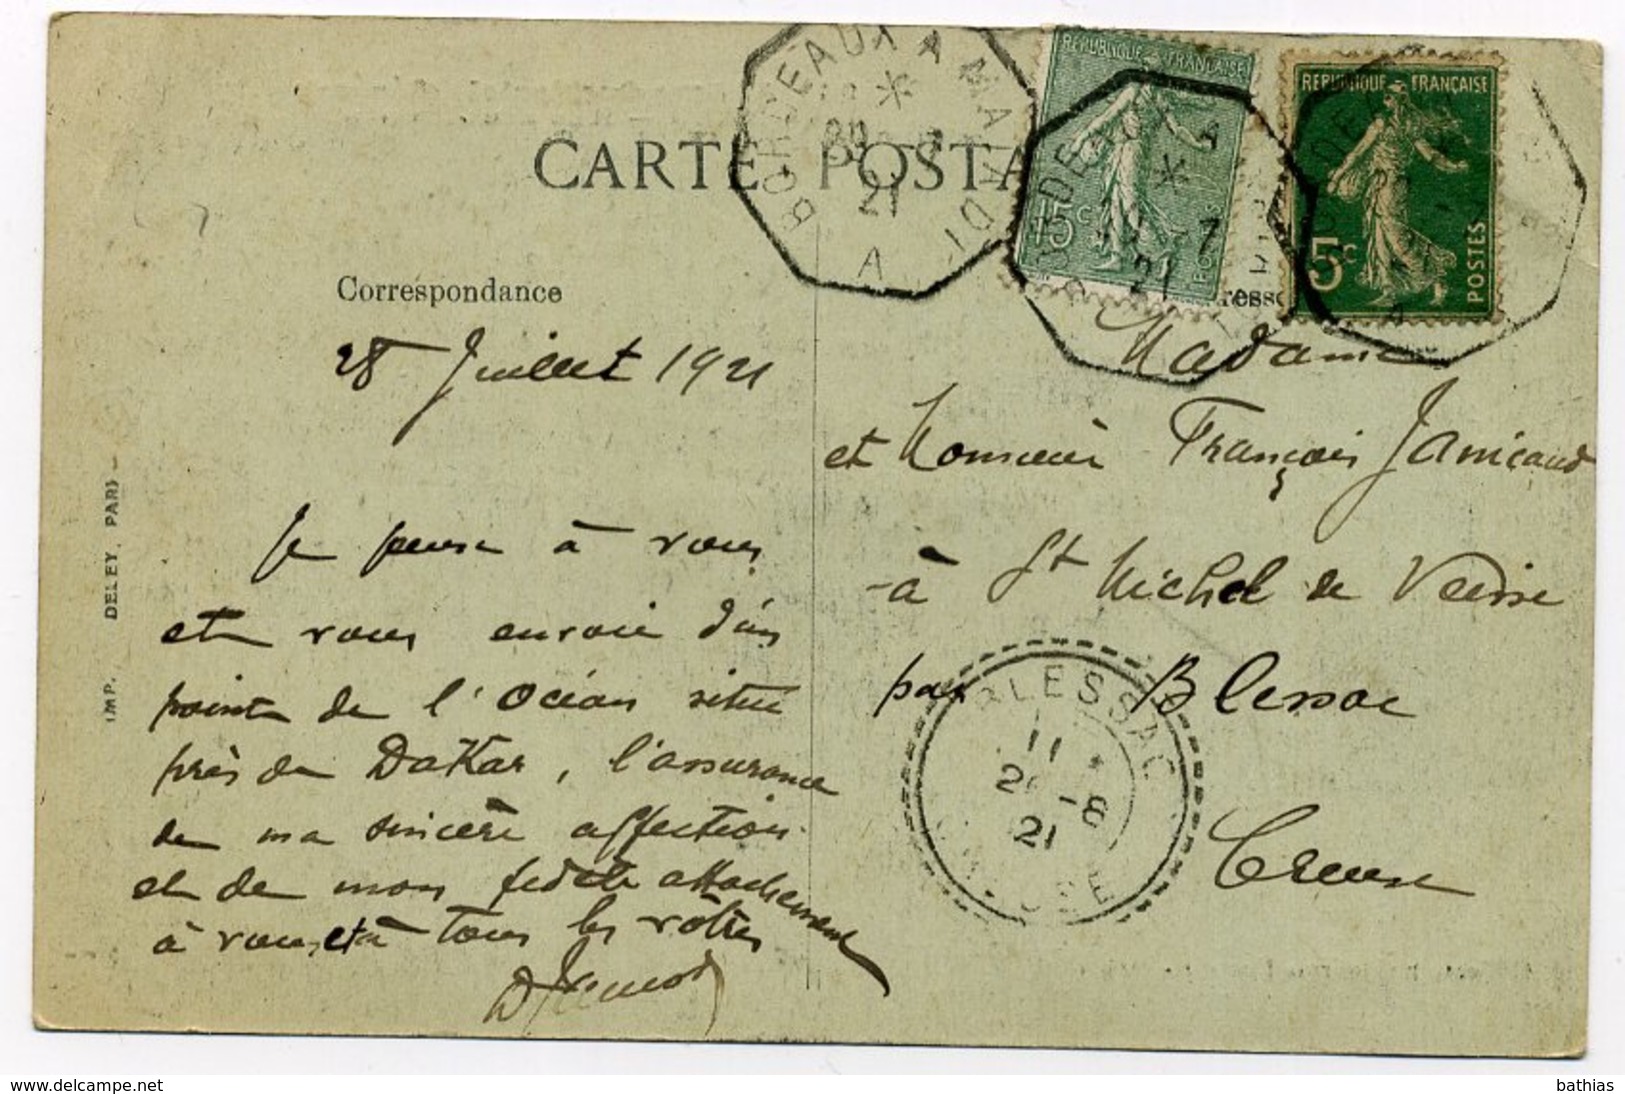 CARTE POSTA
BORDEAUX A MATADI
*
21
A
REPUBLIQUE FRANÇAISE
15c
POSTES
*
-7
21
REPUBLIQUE FRANÇAISE
5c
POSTES
A
Correspondance
resse
28 Juillet 1921
Je pense à vous
et vous envoie d'un
point de l'Océan situé
près de Dakar, l'assurance
de ma sincère affection
et de mon fidèle attachement
à vous, et à tous les vôtres
Madame
et Monsieur François Janicaud
à St Michel de Veisse
par Blessac
Creuse
BLESSAC
11 *
2 -8
21
CREUSE
IMP. DELEY, PARIS
delcampe.net
bathias